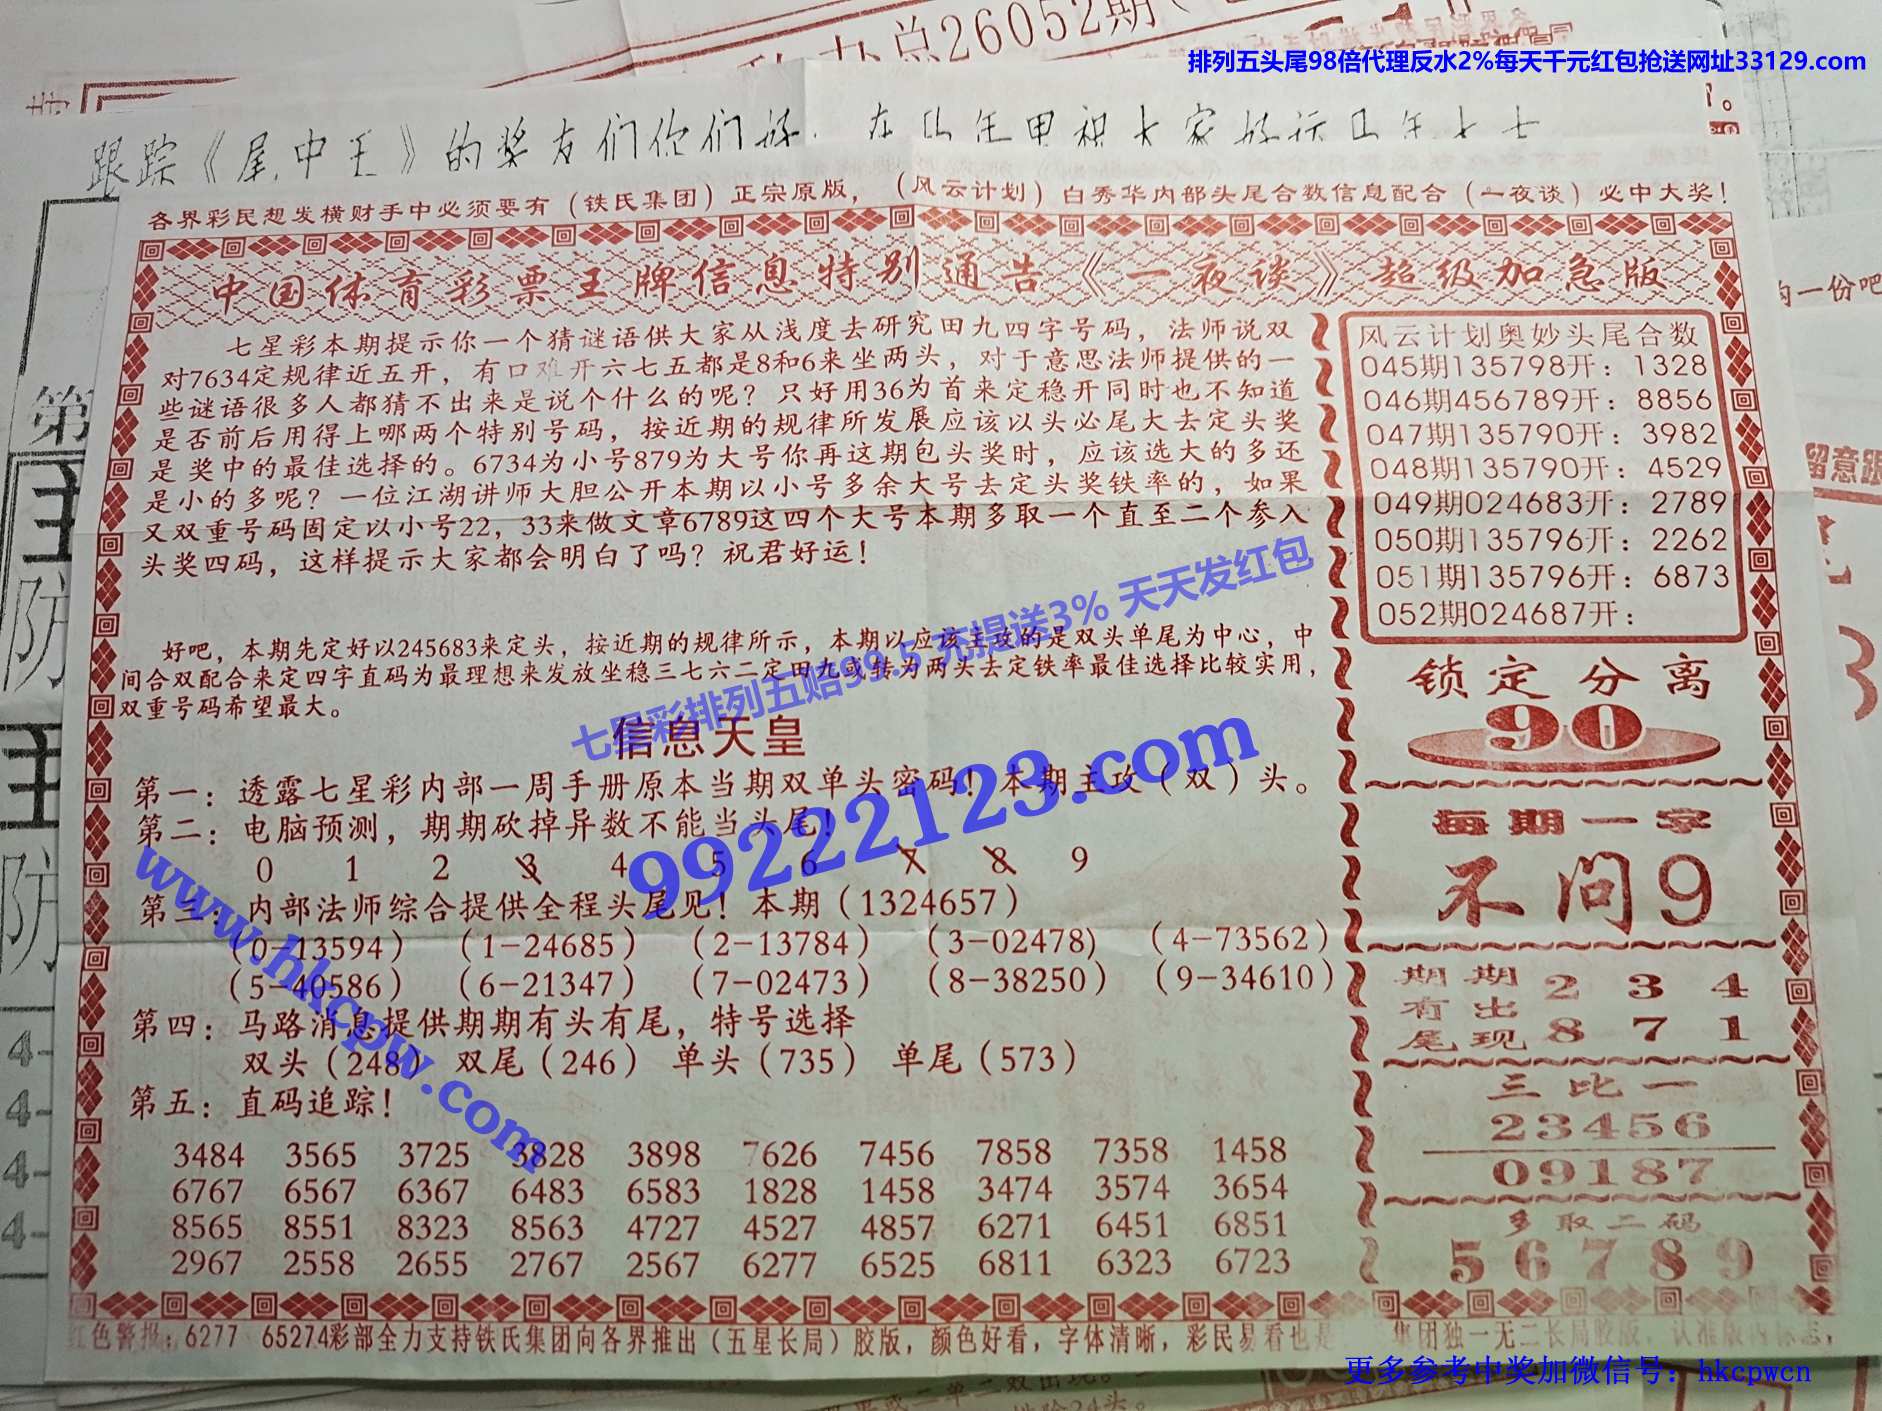 办总26052期
排列五头尾98倍代理反水2%每天千元红包抢送网址33129.com
跟踪《尾中王》的奖友们你们好
各界彩民想发横财手中必须要有（铁氏集团）正宗原版，（风云计划）白秀华内部头尾合数信息配合（一夜谈）必中大奖！
中国体育彩票王牌信息特别通告《一夜谈》超级加急版
七星彩本期提示你一个猜谜语供大家从浅度去研究田九四字号码，法师说双
对7634定规律近五开，有口难开六七五都是8和6来坐两头，对于意思法师提供的一
些谜语很多人都猜不出来是说个什么的呢？只好用36为首来定稳开同时也不知道
是否前后用得上哪两个特别号码，按近期的规律所发展应该以头必尾大去定头奖
是奖中的最佳选择的。6734为小号879为大号你再这期包头奖时，应该选大的多还
是小的多呢？一位江湖讲师大胆公开本期以小号多余大号去定头奖铁率的，如果
又双重号码固定以小号22，33来做文章6789这四个大号本期多取一个直至二个参入
头奖四码，这样提示大家都会明白了吗？祝君好运！
好吧，本期先定好以245683来定头，按近期的规律所示，本期以应该主攻的是双头单尾为中心，中
间合双配合来定四字直码为最理想来发放坐稳三七六二定田九或转为两头去定铁率最佳选择比较实用，
双重号码希望最大。
信息天皇
第一：透露七星彩内部一周手册原本当期双单头密码！本期主攻（双）头。
第二：电脑预测，期期砍掉异数不能当头尾！
0 1 2 3 4 5 6 7 8 9
第三：内部法师综合提供全程头尾见！本期（1324657）
（0-13594）（1-24685）（2-13784）（3-02478)（4-73562）
（5-40586）（6-21347）（7-02473）（8-38250）（9-34610）
第四：马路消息提供期期有头有尾，特号选择
双头（248）双尾（246）单头（735）单尾（573）
第五：直码追踪！
3484 3565 3725 3828 3898 7626 7456 7858 7358 1458
6767 6567 6367 6483 6583 1828 1458 3474 3574 3654
8565 8551 8323 8563 4727 4527 4857 6271 6451 6851
2967 2558 2655 2767 2567 6277 6525 6811 6323 6723
风云计划奥妙头尾合数
045期135798开：1328
046期456789开：8856
047期135790开：3982
048期135790开：4529
049期024683开：2789
050期135796开：2262
051期135796开：6873
052期024687开：
锁定分离
90
每期一字
不问9
期期 2 3 4
有出
尾现 8 7 1
三比一
23456
09187
多取二码
56789
红色警报：6277 65274彩部全力支持铁氏集团向各界推出（五星长局）胶版，颜色好看，字体清晰，彩民易看也是 集团独一无二长局胶版，认准版内标志；
七星彩排列五赔99.5 充提送3% 天天发红包
99222123.com
www.hkcpw.com
更多参考中奖加微信号：hkcpwcn
的一份吧
留意跟
第
主
防
主
防